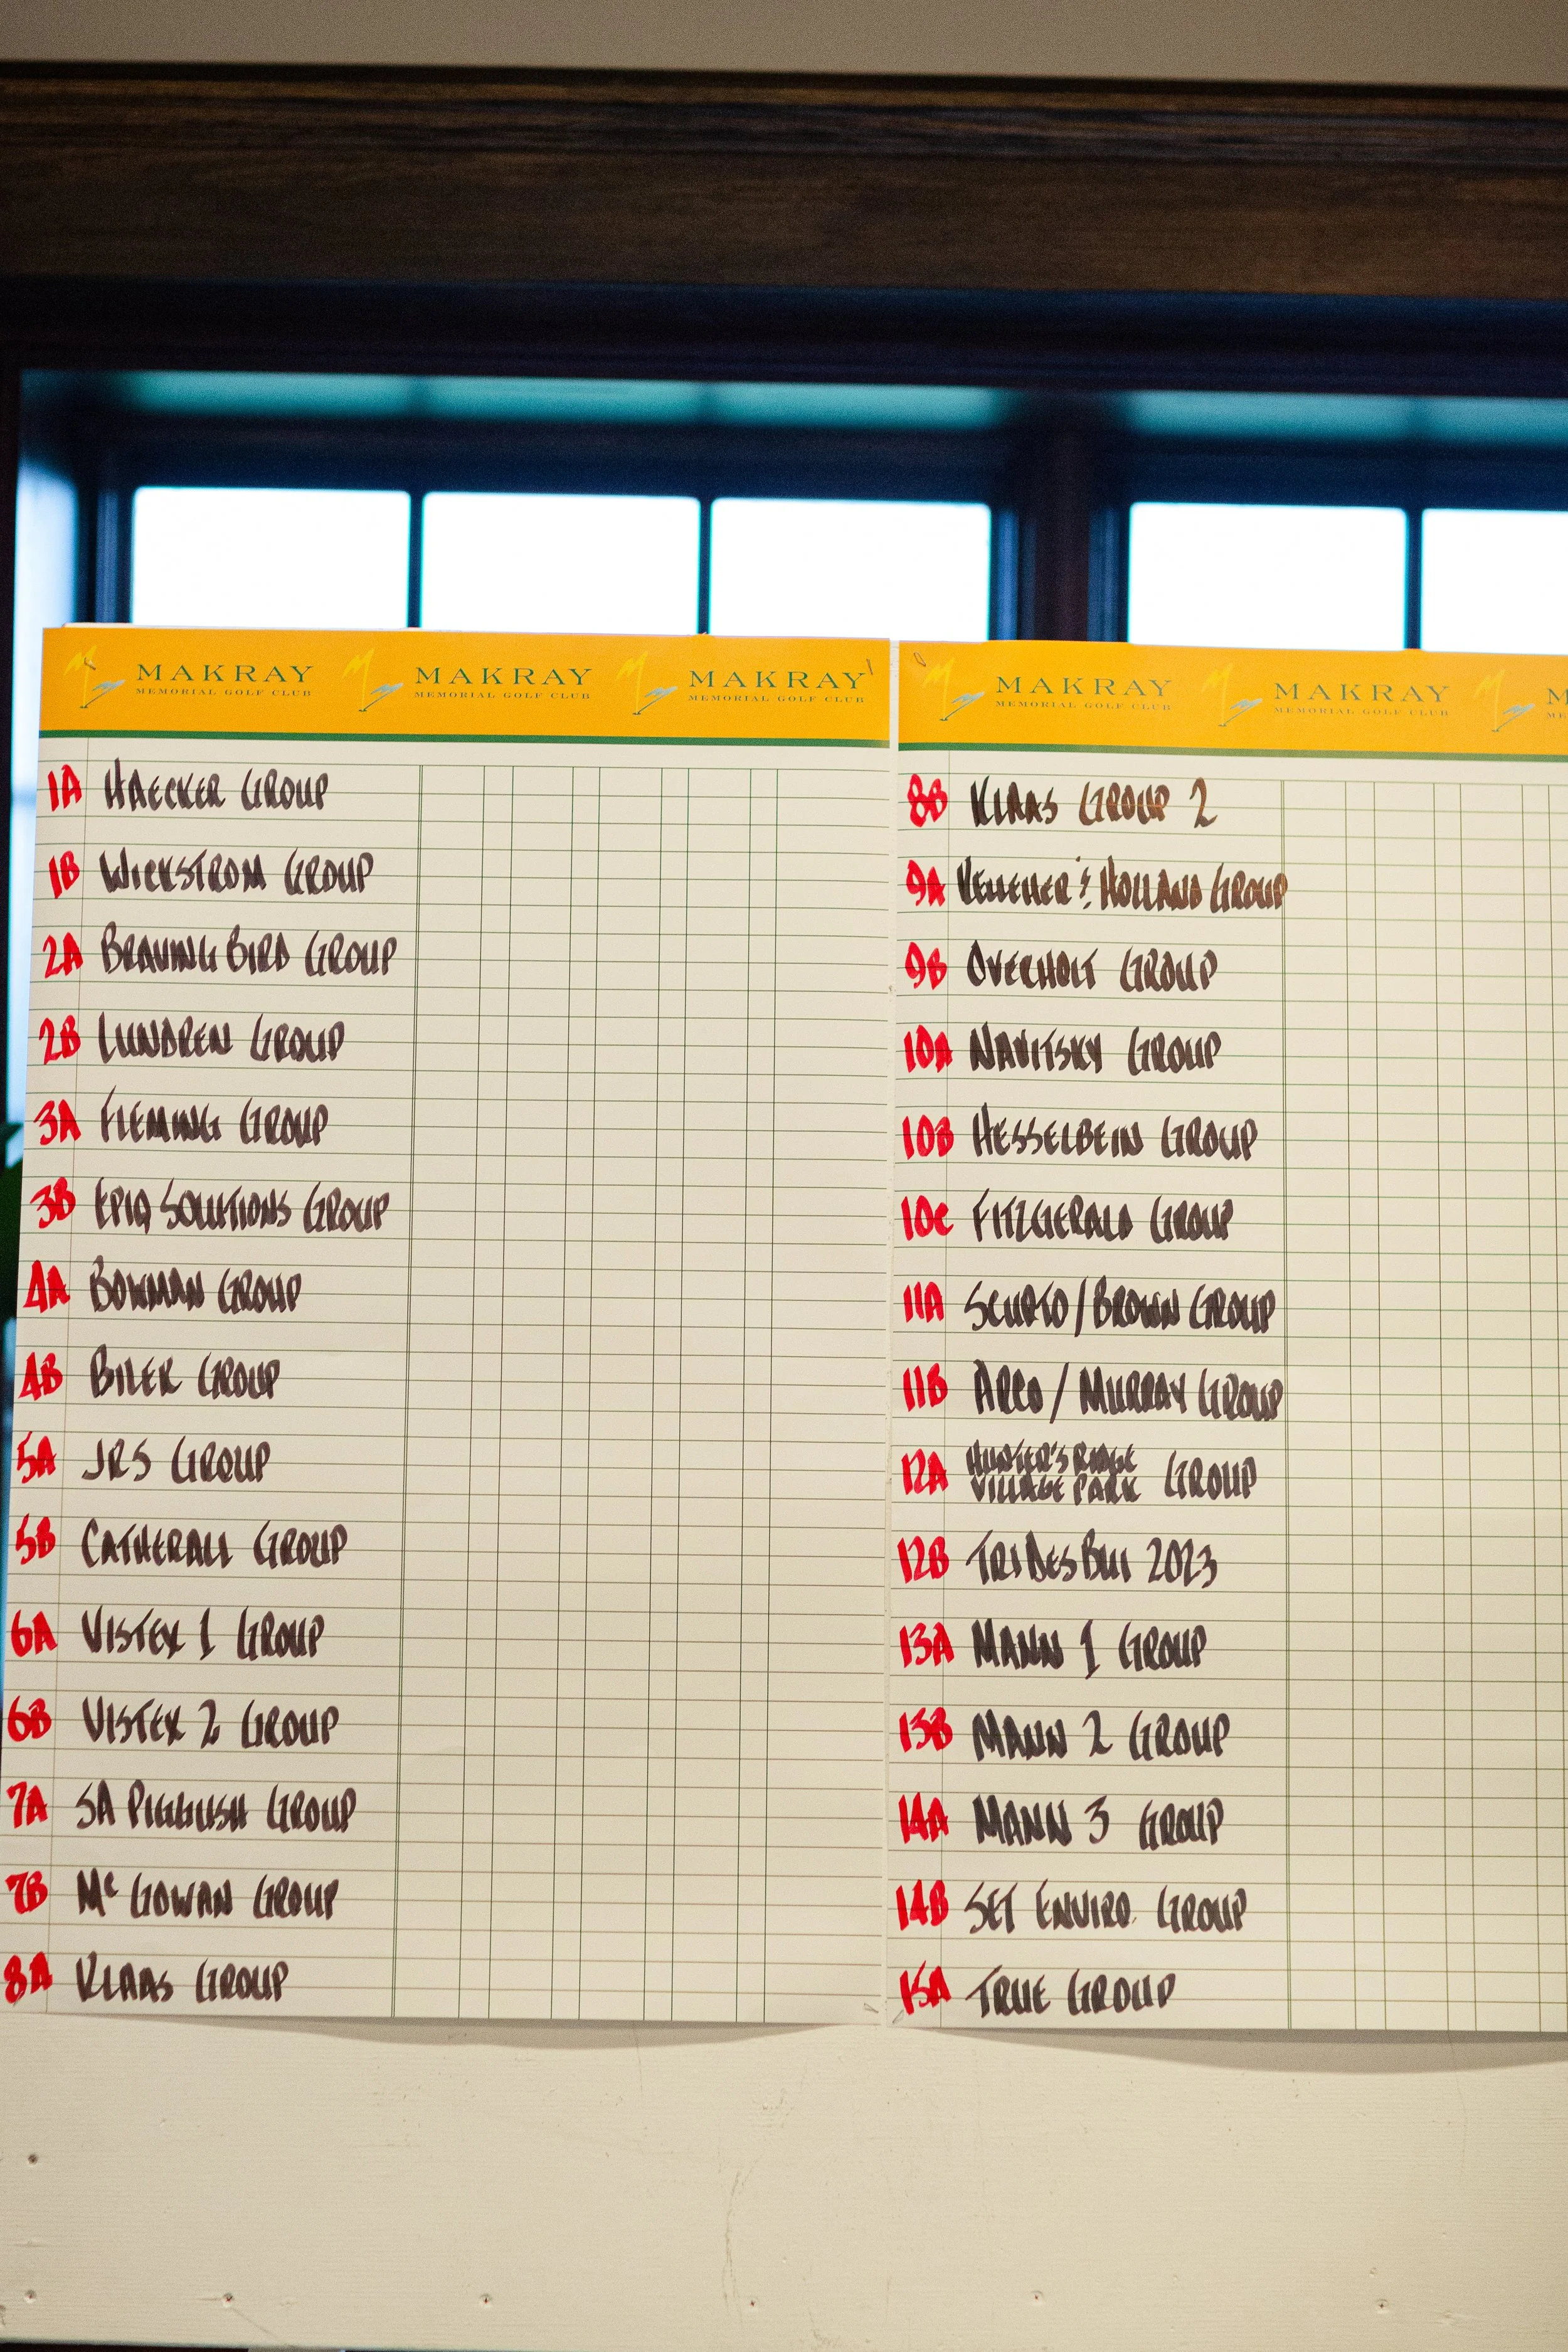 MAKRAY MAKRAY MAKRAY
MEMORIAL GOLF CLUB MEMORIAL GOLF CLUB MEMORIAL GOLF CLUB
1A HAECKER GROUP
1B WICKSTROM GROUP
2A BRAVING BIRD GROUP
2B LUNDREN GROUP
3A FLEMING GROUP
3B EPIQ SOLUTIONS GROUP
4A BOWMAN GROUP
4B BILEK GROUP
5A JRS GROUP
5B CATHERALL GROUP
6A VISTEX 1 GROUP
6B VISTEX 2 GROUP
7A SA PIGGUSH GROUP
7B Mc GOWAN GROUP
8A KLAAS GROUP
MAKRAY MAKRAY M
MEMORIAL GOLF CLUB MEMORIAL GOLF CLUB ME
8B KLAAS GROUP 2
9A KELLEHER & HOLLAND GROUP
9B OVERHOLT GROUP
10A NAVITSKY GROUP
10B HESSELBEIN GROUP
10C FITZGERALD GROUP
11A SCURTO / BROWN GROUP
11B ARCO / MURRAY GROUP
12A HUNTER'S RIDGE
VILLAGE PARK GROUP
12B TRIDESBUI 2023
13A MANN 1 GROUP
13B MANN 2 GROUP
14A MANN 3 GROUP
14B SET ENVIRO. GROUP
15A TRUE GROUP